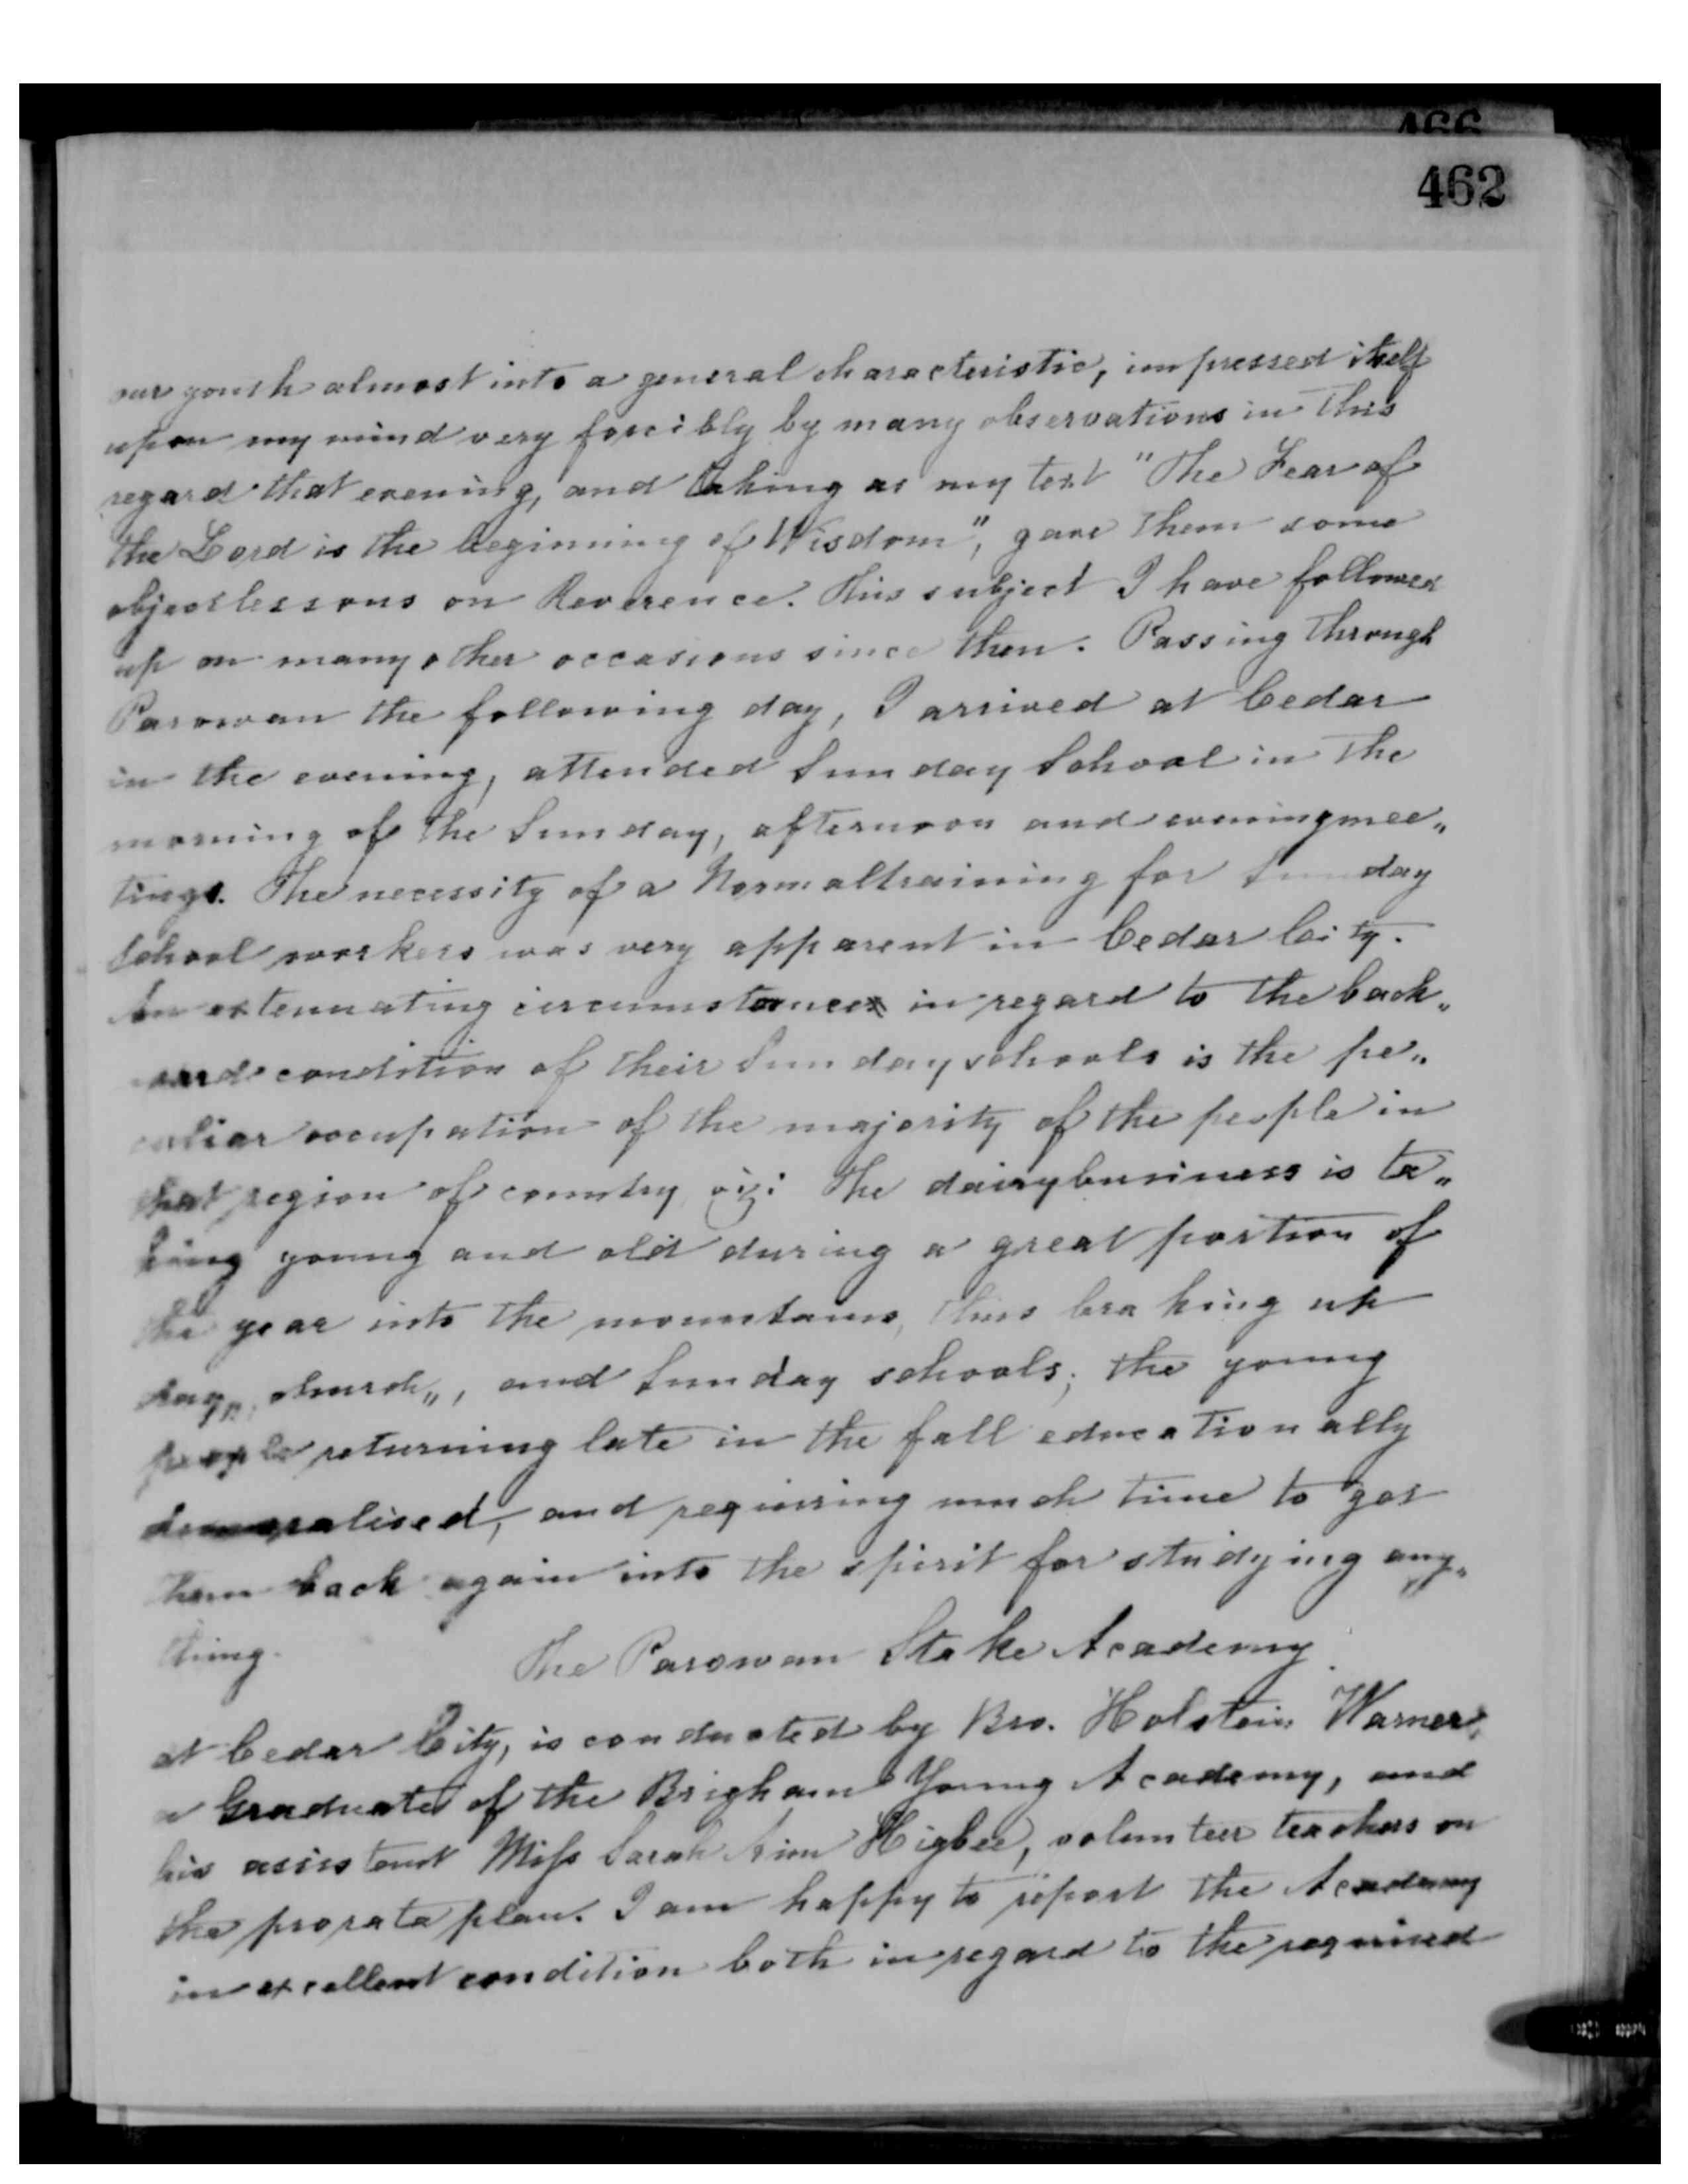 466
462
our youth almost into a general characteristic, impressed itself
upon my mind very forcibly by many observations in this
regard that evening, and taking as my text "The Fear of
the Lord is the beginning of Wisdom", gave them some
objectlessons on Reverence. This subject I have followed
up on many other occasions since then. Passing through
Parowan the following day, I arrived at Cedar
in the evening, attended Sunday School in the
morning of the Sunday, afternoon and eveningmee„
tings. The necessity of a Normaltraining for Sunday
School workers was very apparent in Cedar City.
An extenuating circumstance in regard to the back„
ward condition of their Sunday schools is the pe„
culiar occupation of the majority of the people in
that region of country viz: The dairybusiness is ta„
king young and old during a great portion of
the year into the mountains, thus braking up
day„, church„, and Sunday schools; the young
people returning late in the fall educationally
demoralised, and requiring much time to get
them back again into the spirit for studying any„
thing.
The Parowan Stake Academy
at Cedar City, is conducted by Bro. Holstein Warner,
a Graduate of the Brigham Young Academy, and
his assistent Miss Sarah Ann Higbee, volunteer teachers on
the prorata plan. I am happy to report the Academy
in excellent condition both in regard to the required